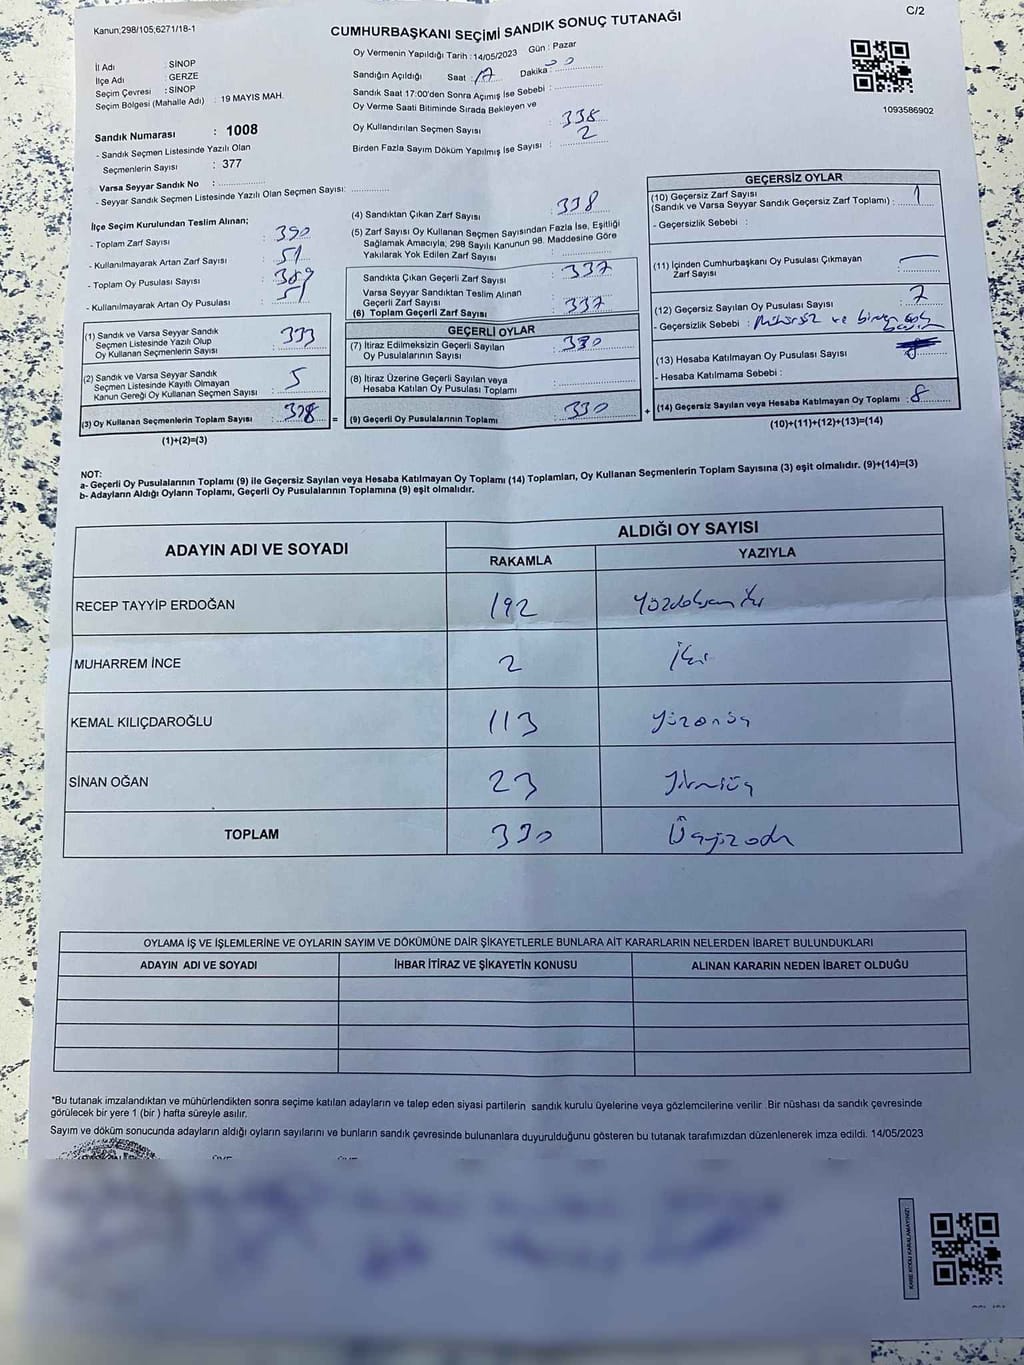 Kanun;298/105;6271/18-1
CUMHURBAŞKANI SEÇİMİ SANDIK SONUÇ TUTANAĞI
C/2
İl Adı : SİNOP
İlçe Adı : GERZE
Seçim Çevresi : SİNOP
Seçim Bölgesi (Mahalle Adı) : 19 MAYIS MAH.
Sandık Numarası : 1008
- Sandık Seçmen Listesinde Yazılı Olan
Seçmenlerin Sayısı : 377
Varsa Seyyar Sandık No :
- Seyyar Sandık Seçmen Listesinde Yazılı Olan Seçmen Sayısı:
Oy Vermenin Yapıldığı Tarih : 14/05/2023 Gün : Pazar
Sandığın Açıldığı Saat : 17 Dakika
Sandık Saat 17:00'den Sonra Açımış İse Sebebi :
Oy Verme Saati Bitiminde Sırada Bekleyen ve
Oy Kullandırılan Seçmen Sayısı : 338
Birden Fazla Sayım Döküm Yapılmış İse Sayısı : 2
1093586902
İlçe Seçim Kurulundan Teslim Alınan;
- Toplam Zarf Sayısı : 390
- Kullanılmayarak Artan Zarf Sayısı : 51
- Toplam Oy Pusulası Sayısı : 389
- Kullanılmayarak Artan Oy Pusulası : 51
(1) Sandık ve Varsa Seyyar Sandık
Seçmen Listesinde Yazılı Olup
Oy Kullanan Seçmenlerin Sayısı : 333
(2) Sandık ve Varsa Seyyar Sandık
Seçmen Listesinde Kayıtlı Olmayan
Kanun Gereği Oy Kullanan Seçmen Sayısı : 5
(3) Oy Kullanan Seçmenlerin Toplam Sayısı : 338 =
(1)+(2)=(3)
(4) Sandıktan Çıkan Zarf Sayısı : 338
(5) Zarf Sayısı Oy Kullanan Seçmen Sayısından Fazla İse, Eşitliği
Sağlamak Amacıyla, 298 Sayılı Kanunun 98. Maddesine Göre
Yakılarak Yok Edilen Zarf Sayısı :
Sandıkta Çıkan Geçerli Zarf Sayısı : 337
Varsa Seyyar Sandıktan Teslim Alınan
Geçerli Zarf Sayısı :
(6) Toplam Geçerli Zarf Sayısı : 337
GEÇERLİ OYLAR
(7) İtiraz Edilmeksizin Geçerli Sayılan
Oy Pusulalarının Sayısı : 330
(8) İtiraz Üzerine Geçerli Sayılan veya
Hesaba Katılan Oy Pusulası Toplamı :
(9) Geçerli Oy Pusulalarının Toplamı : 330 +
GEÇERSİZ OYLAR
(10) Geçersiz Zarf Sayısı
(Sandık ve Varsa Seyyar Sandık Geçersiz Zarf Toplamı) : 1
- Geçersizlik Sebebi :
(11) İçinden Cumhurbaşkanı Oy Pusulası Çıkmayan
Zarf Sayısı : —
(12) Geçersiz Sayılan Oy Pusulası Sayısı : 7
- Geçersizlik Sebebi : Mühürsüz ve birden çok
(13) Hesaba Katılmayan Oy Pusulası Sayısı :
- Hesaba Katılmama Sebebi :
(14) Geçersiz Sayılan veya Hesaba Katılmayan Oy Toplamı : 8
(10)+(11)+(12)+(13)=(14)
NOT:
a- Geçerli Oy Pusulalarının Toplamı (9) ile Geçersiz Sayılan veya Hesaba Katılmayan Oy Toplamı (14) Toplamları, Oy Kullanan Seçmenlerin Toplam Sayısına (3) eşit olmalıdır. (9)+(14)=(3)
b- Adayların Aldığı Oyların Toplamı, Geçerli Oy Pusulalarının Toplamına (9) eşit olmalıdır.
ADAYIN ADI VE SOYADI
ALDIĞI OY SAYISI
RAKAMLA YAZIYLA
RECEP TAYYİP ERDOĞAN 192 Yüzdoksan iki
MUHARREM İNCE 2 İki
KEMAL KILIÇDAROĞLU 113 Yüzonüç
SİNAN OĞAN 23 Yirmiüç
TOPLAM 330 Üçyüzotuz
OYLAMA İŞ VE İŞLEMLERİNE VE OYLARIN SAYIM VE DÖKÜMÜNE DAİR ŞİKAYETLERLE BUNLARA AİT KARARLARIN NELERDEN İBARET BULUNDUKLARI
ADAYIN ADI VE SOYADI İHBAR İTİRAZ VE ŞİKAYETİN KONUSU ALINAN KARARIN NEDEN İBARET OLDUĞU
"Bu tutanak imzalandıktan ve mühürlendikten sonra seçime katılan adayların ve talep eden siyasi partilerin sandık kurulu üyelerine veya gözlemcilerine verilir .Bir nüshası da sandık çevresinde
görülecek bir yere 1 (bir ) hafta süreyle asılır.
Sayım ve döküm sonucunda adayların aldığı oyların sayılarını ve bunların sandık çevresinde bulunanlara duyurulduğunu gösteren bu tutanak tarafımızdan düzenlenerek imza edildi. 14/05/2023
KARE KODU KARALAMAYINIZ!